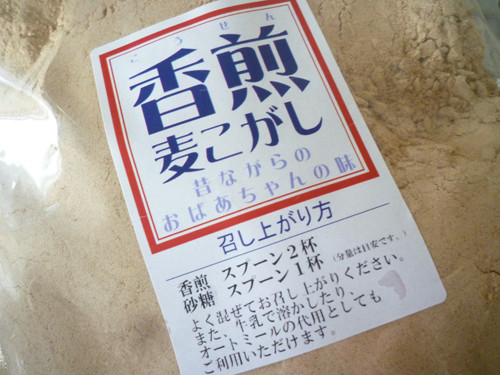 こうせん
香煎
麦こがし
昔ながらの
おばあちゃんの味
召し上がり方
香煎 スプーン2杯
砂糖 スプーン1杯(分量は目安です。)
よく混ぜてお召し上がりください。
また、牛乳で溶かしたり、
オートミールの代用としても
ご利用いただけます。